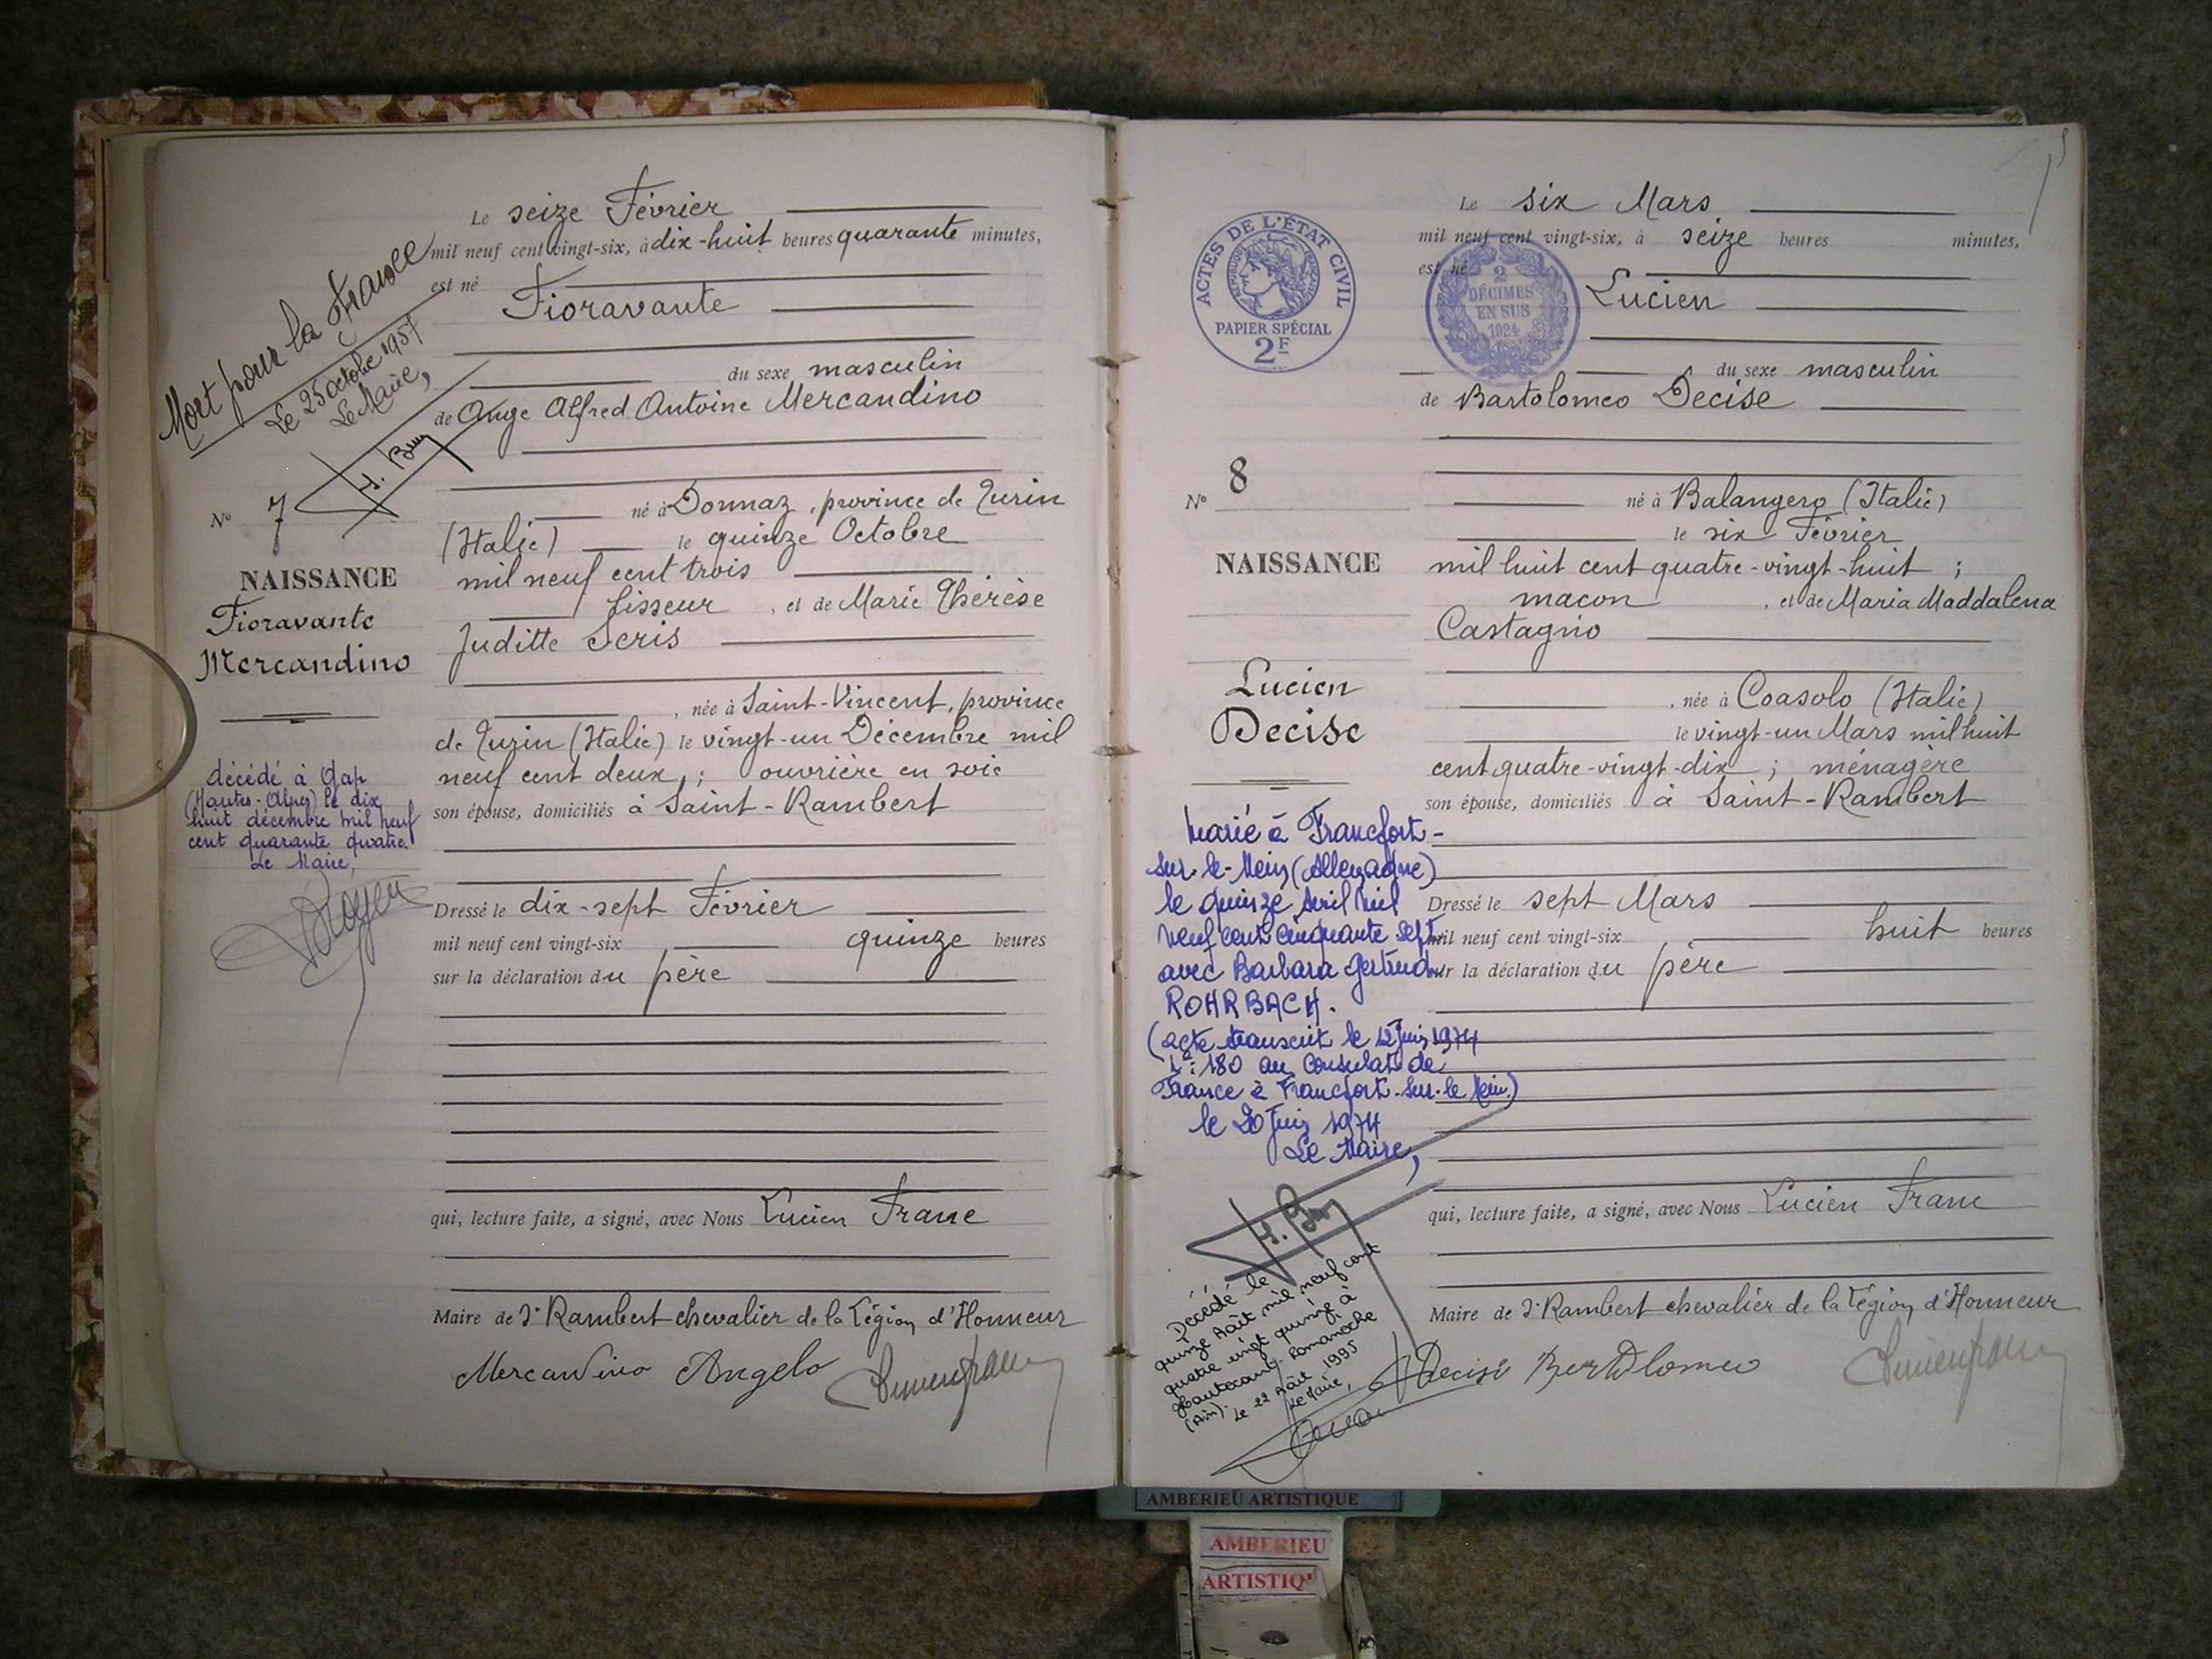 Le seize Février
mil neuf cent vingt-six, à dix-huit heures quarante minutes,
est né
Fioravante
du sexe masculin
de Ange Alfred Antoine Mercandino
né à Donnaz, province de Turin
(Italie) le quinze Octobre
mil neuf cent trois
lisseur, et de Marie Thérèse
Juditte Seris
, née à Saint-Vincent, province
de Turin (Italie) le vingt-un Décembre mil
neuf cent deux ; ouvrière en soie
son épouse, domiciliés à Saint-Rambert
Dressé le dix-sept Février
mil neuf cent vingt-six quinze heures
sur la déclaration du père
qui, lecture faite, a signé, avec Nous Lucien Franc
Maire de St Rambert chevalier de la Légion d'Honneur
Mercandino Angelo
Mort pour la France
Le 25 octobre 1957
Le Maire,
H. Bruy
No 7
NAISSANCE
Fioravante
Mercandino
décédé à Gap
(Hautes-Alpes) le dix
huit décembre mil neuf
cent quarante quatre.
Le Maire,
ACTES DE L'ÉTAT CIVIL
RÉPUBLIQUE FRANÇAISE
PAPIER SPÉCIAL
2F
2
DÉCIMES
EN SUS
1924
Le six Mars
mil neuf cent vingt-six, à seize heures minutes,
est né
Lucien
du sexe masculin
de Bartolomeo Decise
né à Balangero (Italie)
le six Février
mil huit cent quatre-vingt-huit ;
macon, et de Maria Maddalena
Castagno
, née à Coasolo (Italie)
le vingt-un Mars mil huit
cent quatre-vingt-dix ; ménagère
son épouse, domiciliés à Saint-Rambert
Dressé le sept Mars
mil neuf cent vingt-six huit heures
sur la déclaration du père
qui, lecture faite, a signé, avec Nous Lucien Franc
Maire de St Rambert chevalier de la Légion d'Honneur
Decise Bertolomeo
No 8
NAISSANCE
Lucien
Decise
Marié à Francfort-
sur-le-Mein (Allemagne)
le quinze Avril mil
neuf cent cinquante sept
avec Barbara Gertrud
ROHRBACH.
(acte transcrit le 12 Juin 1974
n°: 180 au Consulat de
France à Francfort-sur-le Mein.)
le 20 Juin 1974
Le Maire,
H. Bruy
Décédé le
quinze Août mil neuf cent
quatre vingt quinze à
Hautecourt-Romanèche
(Ain). Le 22 Août 1995
Le Maire,
AMBERIEU ARTISTIQUE
AMBERIEU
ARTISTIQ